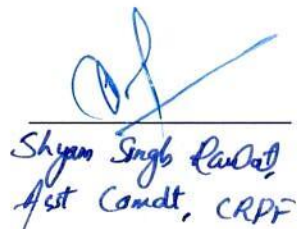 Shyam Singh Rawat,
Asst Comdt, CRPF